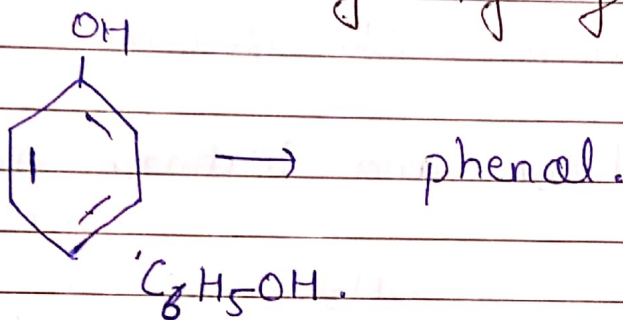 OH
→ phenol.
C6H5OH.